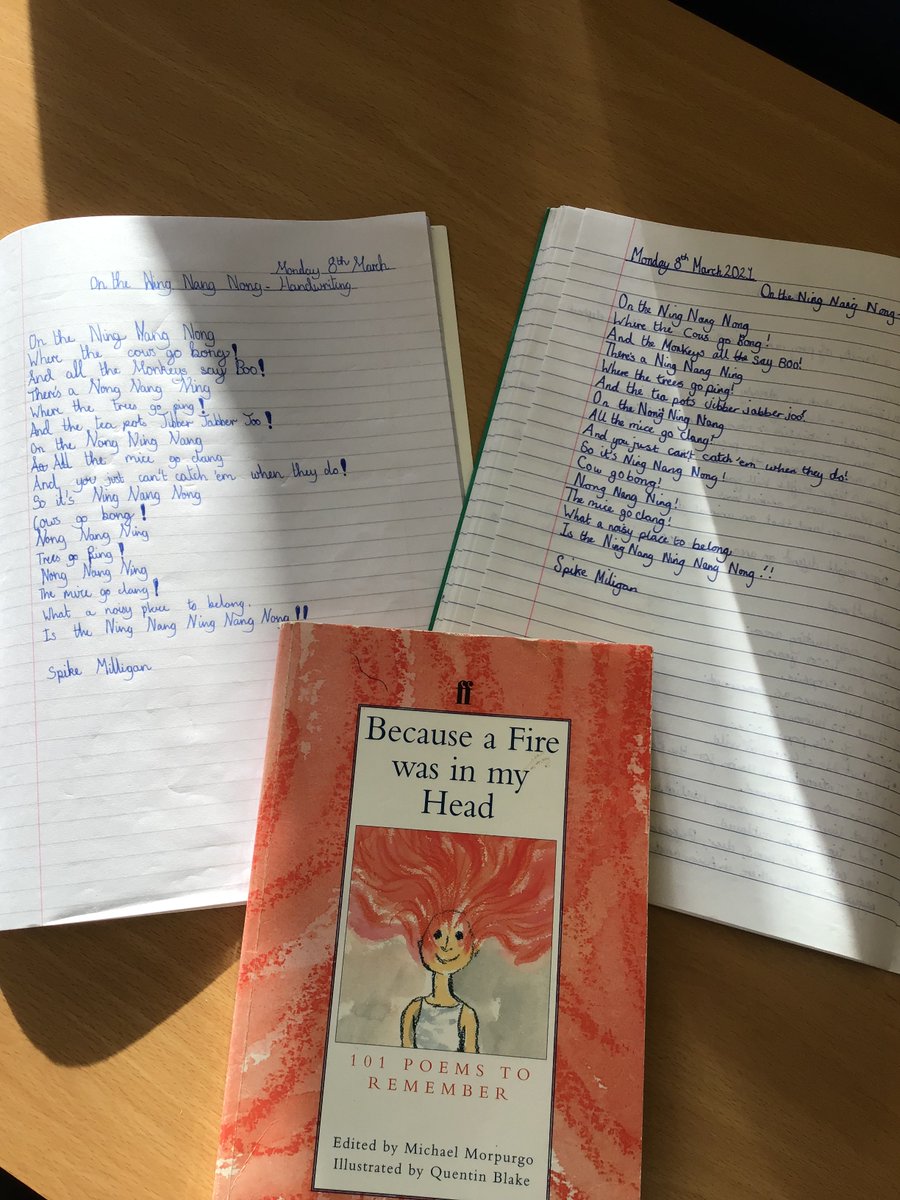 Monday 8th March
On the Ning Nang Nong - Handwriting
On the Ning Nang Nong
Where the cows go bong!
And all the Monkeys say Boo!
There's a Nong Nang Ning
Where the trees go ping!
And the tea pots Jibber Jabber Joo!
On the Nong Ning Nang
All the mice go clang
And you just can't catch 'em when they do!
So it's Ning Nang Nong
Cows go bong!
Nong Nang Ning
Trees go ping!
Nong Nang Ning
The mice go clang!
What a noisy place to belong.
Is the Ning Nang Ning Nang Nong!!
Spike Milligan
Monday 8th March 2021
On the Ning Nang Nong -
On the Ning Nang Nong
Where the Cows go Bong!
And the Monkeys all the say Boo!
There's a Ning Nang Ning
Where the trees go ping!
And the tea pots Jibber jabber joo!
On the Nong Ning Nang
All the mice go clang!
And you just can't catch 'em when they do!
So it's Ning Nang Nong!
Cow go bong!
Nong Nang Ning!
The mice go clang!
What a noisy place to belong
Is the Ning Nang Ning Nang Nong!!
Spike Miligan
ff
Because a Fire
was in my
Head
101 POEMS TO
REMEMBER
Edited by Michael Morpurgo
Illustrated by Quentin Blake